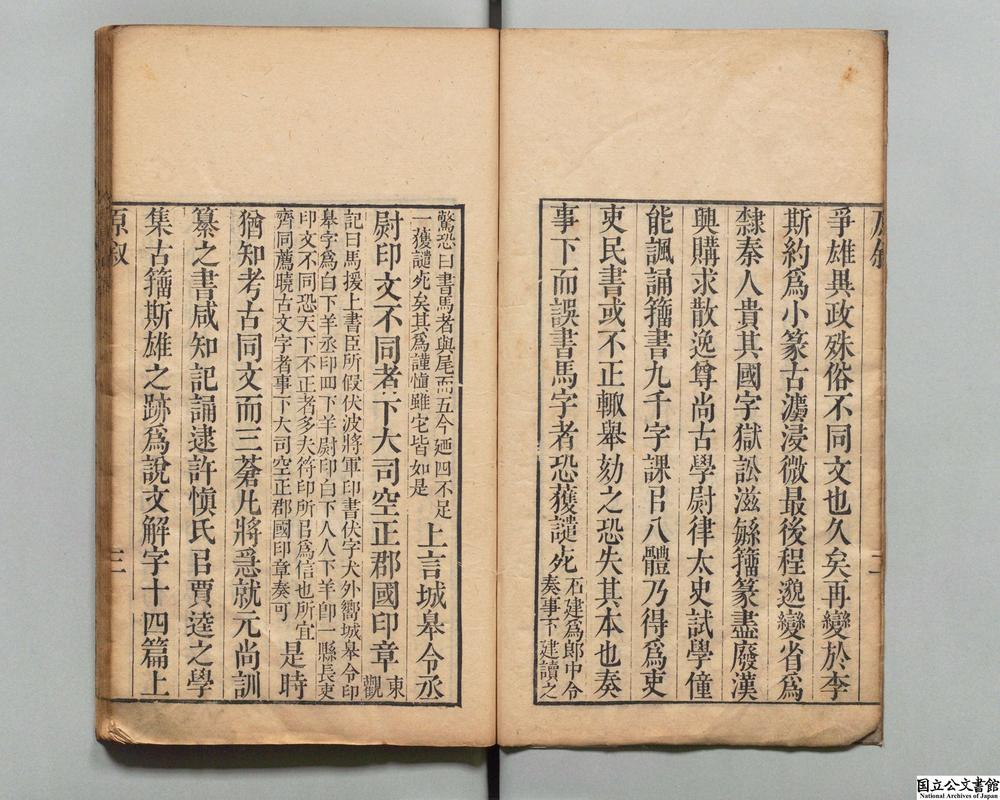 二
爭雄異政殊俗不同文也久矣再變於李
斯約爲小篆古灋浸微最後程邈變省爲
隸秦人貴其國字獄訟滋緐籒篆盡廢漢
興購求散逸尊尚古學尉律太史試學僮
能諷誦籒書九千字課㠯八體乃得爲吏
吏民書或不正輙舉劾之恐失其本也奏
事下而誤書馬字者恐獲譴死
石建爲郎中令
奏事下建讀之
驚恐曰書馬者與尾而五今廼四不足
一獲譴死矣其爲謹愼雖宅皆如是
上言城皋令丞
尉印文不同者下大司空正郡國印章
東
觀
記曰馬援上書臣所假伏波將軍印書伏字犬外嚮城皋令印
皋字爲白下羊丞印四下羊尉印白下人人下羊卽一縣長吏
印文不同恐天下不正者多夫符印所㠯爲信也所宜
齊同薦曉古文字者事下大司空正郡國印章奏可
是時
猶知考古同文而三蒼凡將急就元尚訓
纂之書咸知記誦逮許愼氏㠯賈逵之學
集古籒斯雄之跡爲說文解字十四篇上
原叙
三
国立公文書館
National Archives of Japan